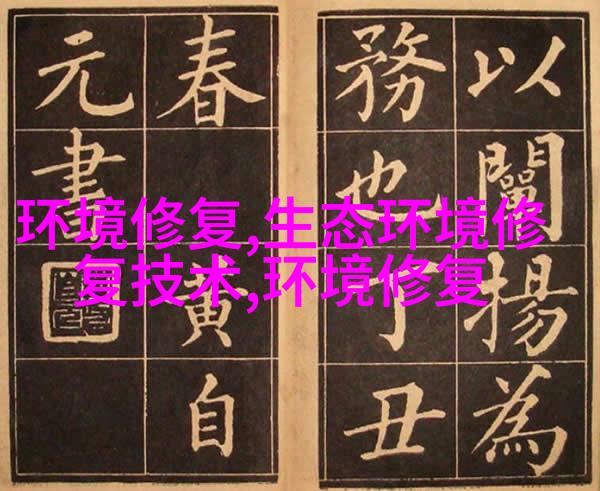 以闡揚為
務也丁丑
春黃自
元書
环境修复,生态环境修
复技术,环境修复